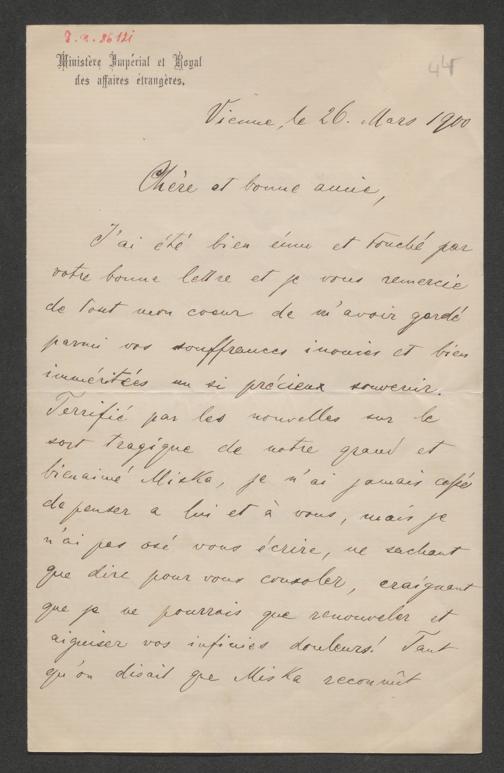 J. a. 2612i
44
Ministère Impérial et Royal
des affaires étrangères.
Vienne, le 26. Mars 1900
Chère et bonne amie,
J'ai été bien ému et touché par
votre bonne lettre et je vous remercie
de tout mon coeur de m'avoir gardé
parmi vos souffrances inouies et bien
imméritées un si précieux souvenir.
Terrifié par les nouvelles sur le
sort tragique de notre grand et
bienaimé Miska, je n'ai jamais cessé
de penser a lui et à vous, mais je
n'ai pas osé vous écrire, ne sachant
que dire pour vous consoler, craignant
que je ne pourrais que renouveler et
aiguiser vos infinies douleurs! Tant
qu'on disait que Miska reconnût